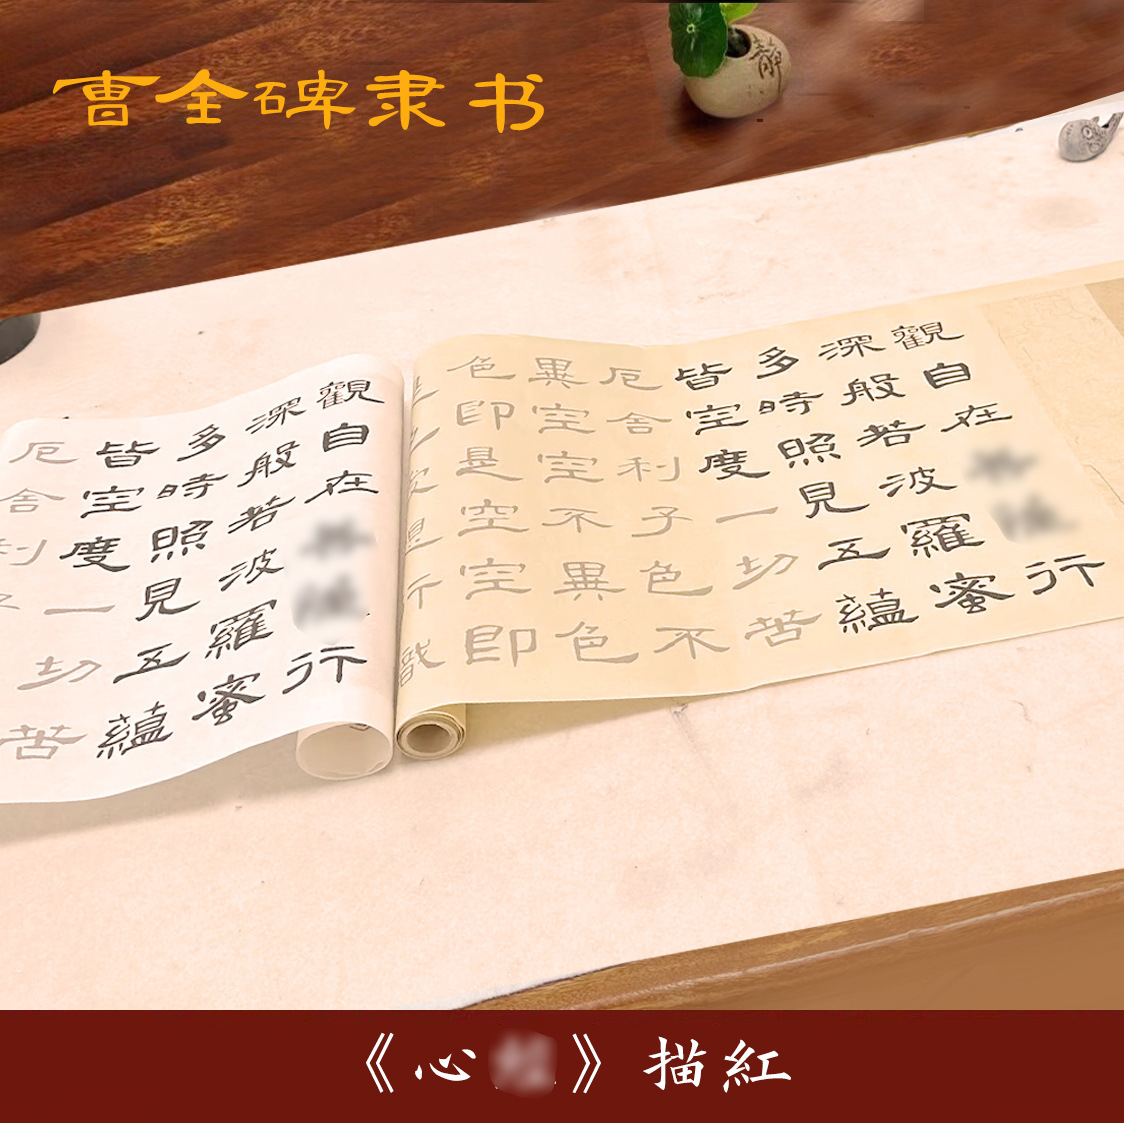 曹全碑隶书
靜
觀自在行
深般若波羅蜜
多時照見五蘊
皆空度一切苦
厄舍利子色不
異空空不異色
色即是空空即
觀自在行
深般若波羅蜜
多時照見五蘊
皆空度一切苦
厄舍利
《心》描紅